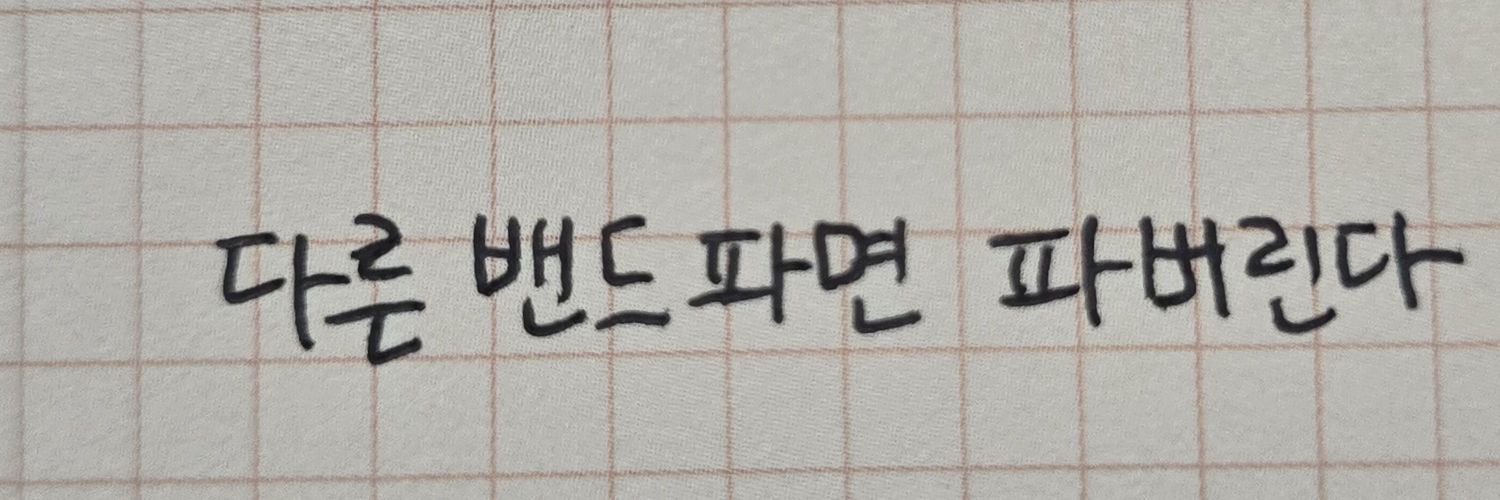 다른 밴드파면 파버린다